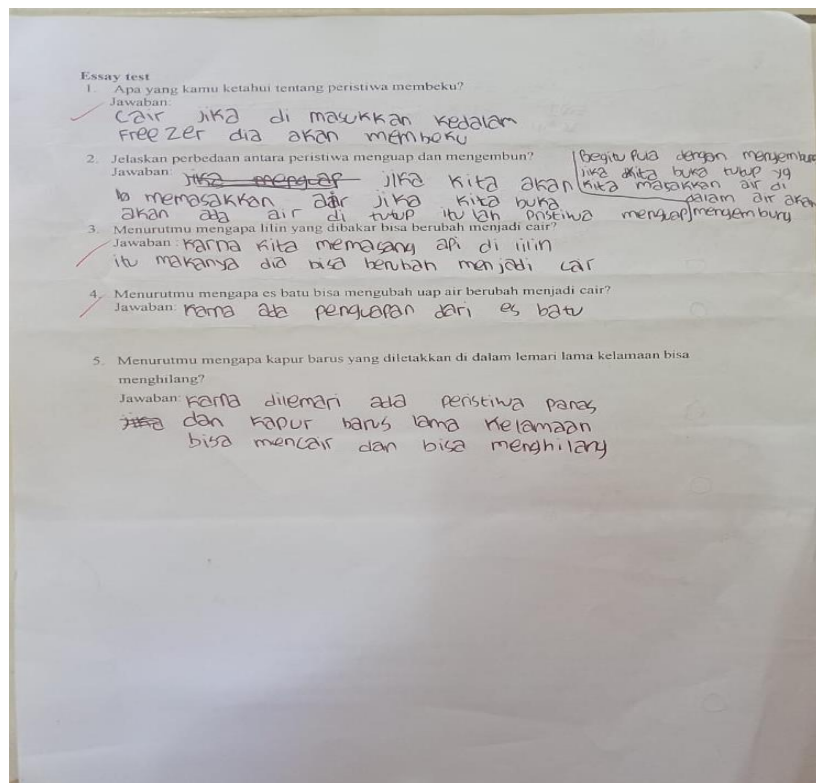 Essay test
1. Apa yang kamu ketahui tentang peristiwa membeku?
Jawaban:
Cair Jika di masukkan kedalam
Freezer dia akan membeku
2. Jelaskan perbedaan antara peristiwa menguap dan mengembun?
Jawaban: jika menguap jika kita akan
memasakkan air jika kita buka
akan ada air di tutup itu lah pristiwa menguap
Begitu Pula dengan mengembun
jika kita buka tutup yg
kita masakkan air di
dalam air akan
mengembung
3. Menurutmu mengapa lilin yang dibakar bisa berubah menjadi cair?
Jawaban : karna kita memasang api di lilin
itu makanya dia bisa berubah menjadi cair
4. Menurutmu mengapa es batu bisa mengubah uap air berubah menjadi cair?
Jawaban: karna ada penguapan dari es batu
5. Menurutmu mengapa kapur barus yang diletakkan di dalam lemari lama kelamaan bisa
menghilang?
Jawaban: karna dilemari ada peristiwa panas
jika dan kapur barus lama kelamaan
bisa mencair dan bisa menghilang